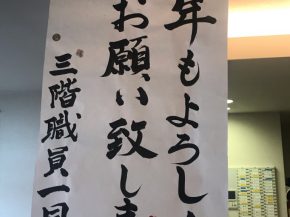 年もよろし
お願い致しま
三階職員一同